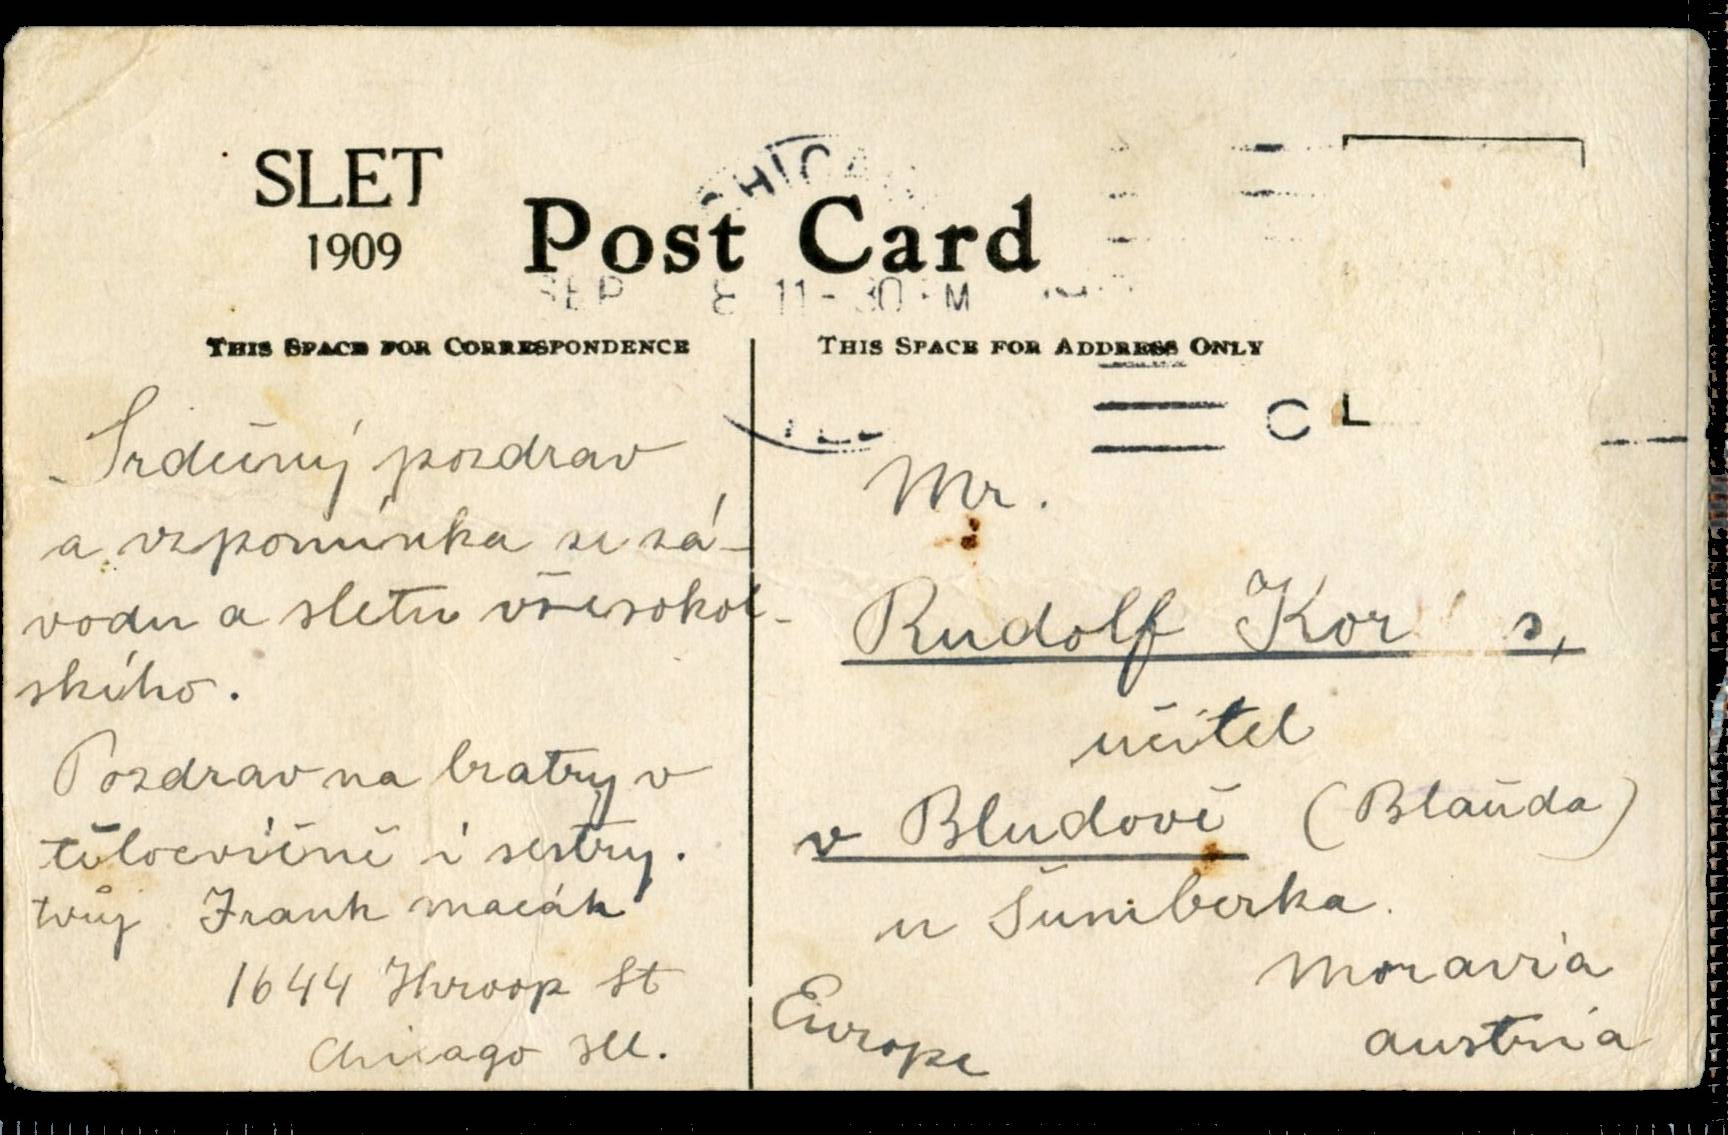 SLET
1909
CHICA
Post Card
SEP 8 11-30 M
THIS SPACE FOR CORRESPONDENCE
THIS SPACE FOR ADDRESS ONLY
C L
Srdečný pozdrav
a vzpomínka se zá-
vodu a sletu všesokol-
ského.
Pozdrav na bratry v
tělocvičně i sestry.
tvůj Frank Macák
1644 Throop St
Chicago Ill.
Mr.
Rudolf Kor s,
učitel
v Bludově (Blauda)
u Šumberka.
Moravia
Austria
Europe